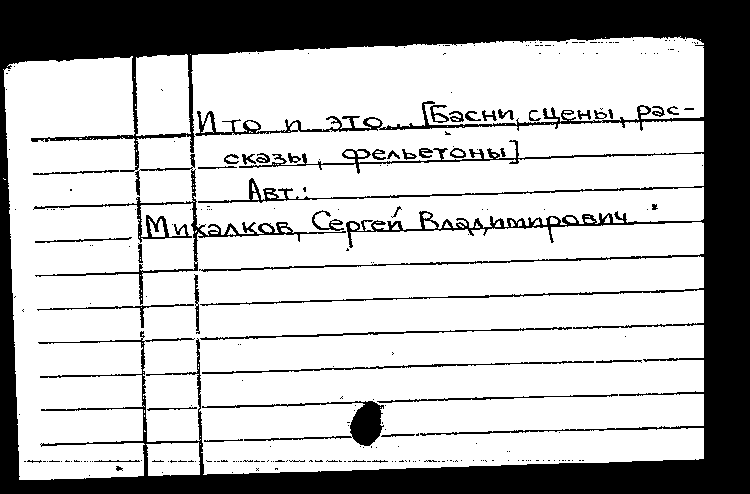 И то и это... [Басни, сцены, рас-
сказы, фельетоны]
Авт.:
Михалков, Сергей Владимирович.